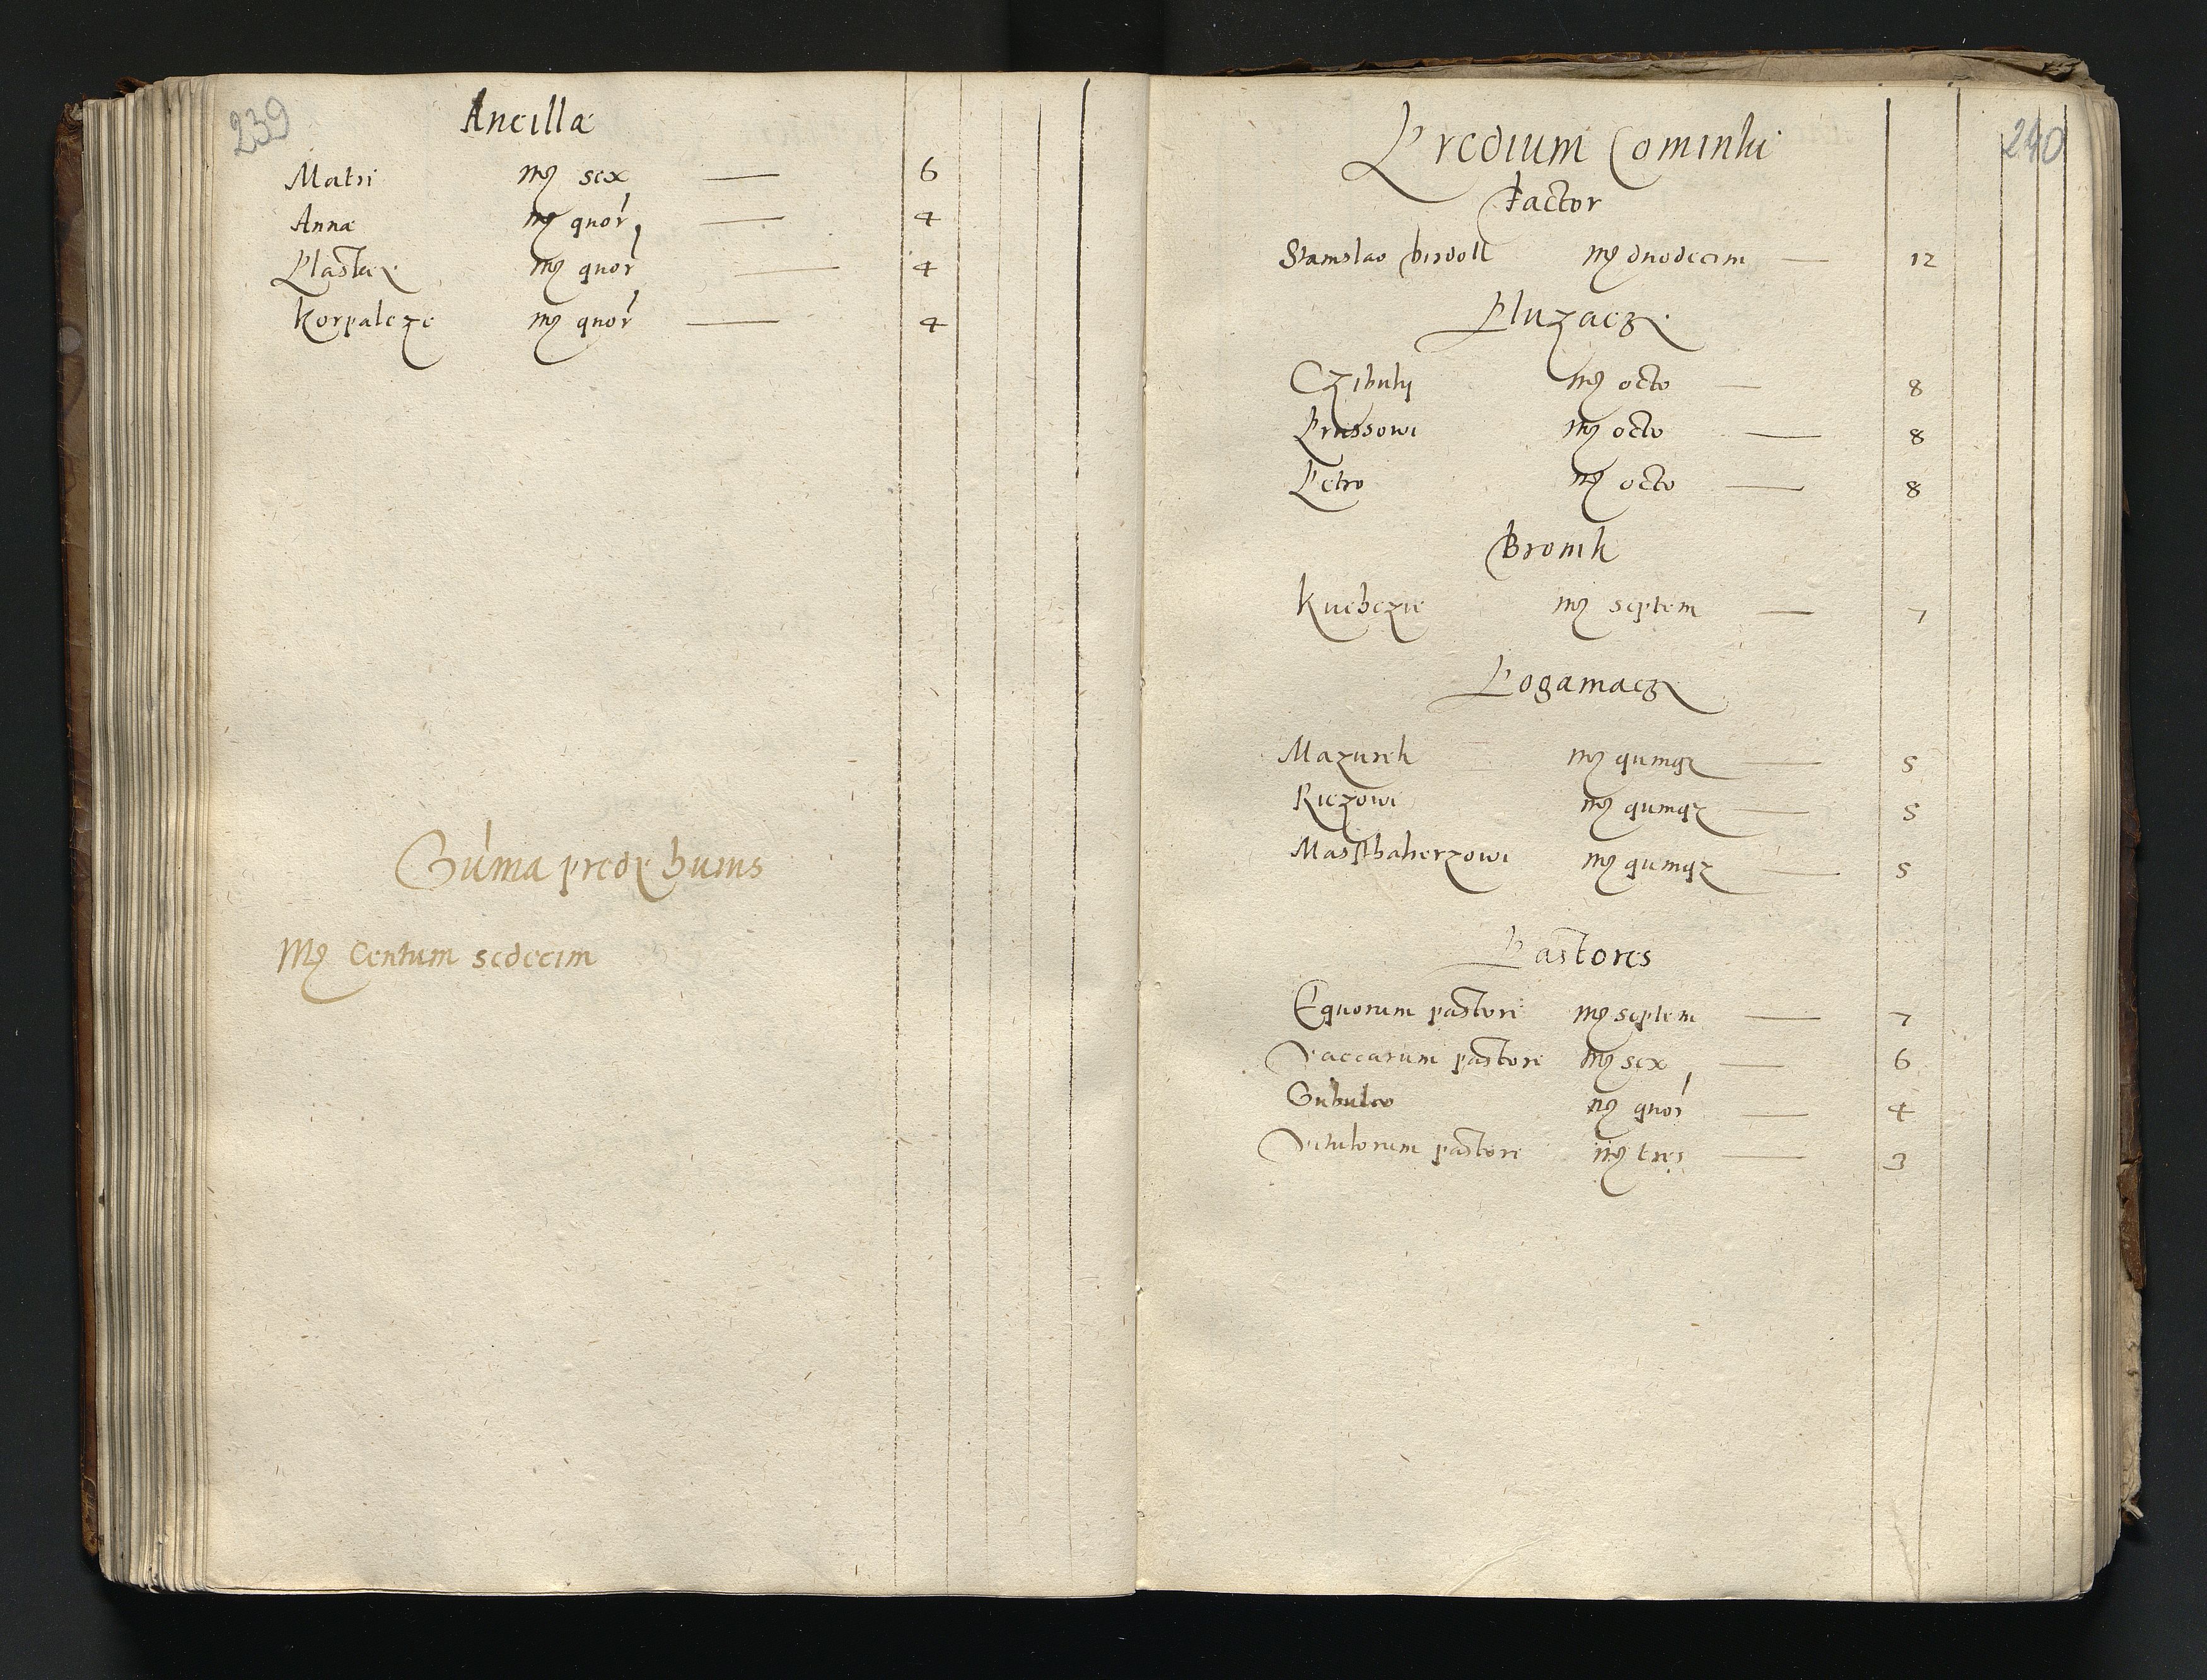 239
Ancillæ
Matri mg sex — 6
Annæ mg quor — 4
Plastuz mg quor — 4
Korpalcze mg quor — 4
Suma predij huius
Mg Centum sedecim
240
Predium Cominki
Factor
Stanislao birdoll mg duodecim — 12
Pluzacz
Czibulij mg octo — 8
Prussowi mg octo — 8
Petro mg octo — 8
Bronik
Kuebczie mg septem — 7
Poganiacz
Mazurek mg quinqz — 5
Riczowi mg quinqz — 5
mg quinqz — 5
Pastores
Equorum pastori mg septem — 7
Vaccarum pastori mg sex — 6
Subulco mg quor — 4
Vitulorum pastori mg tres — 3